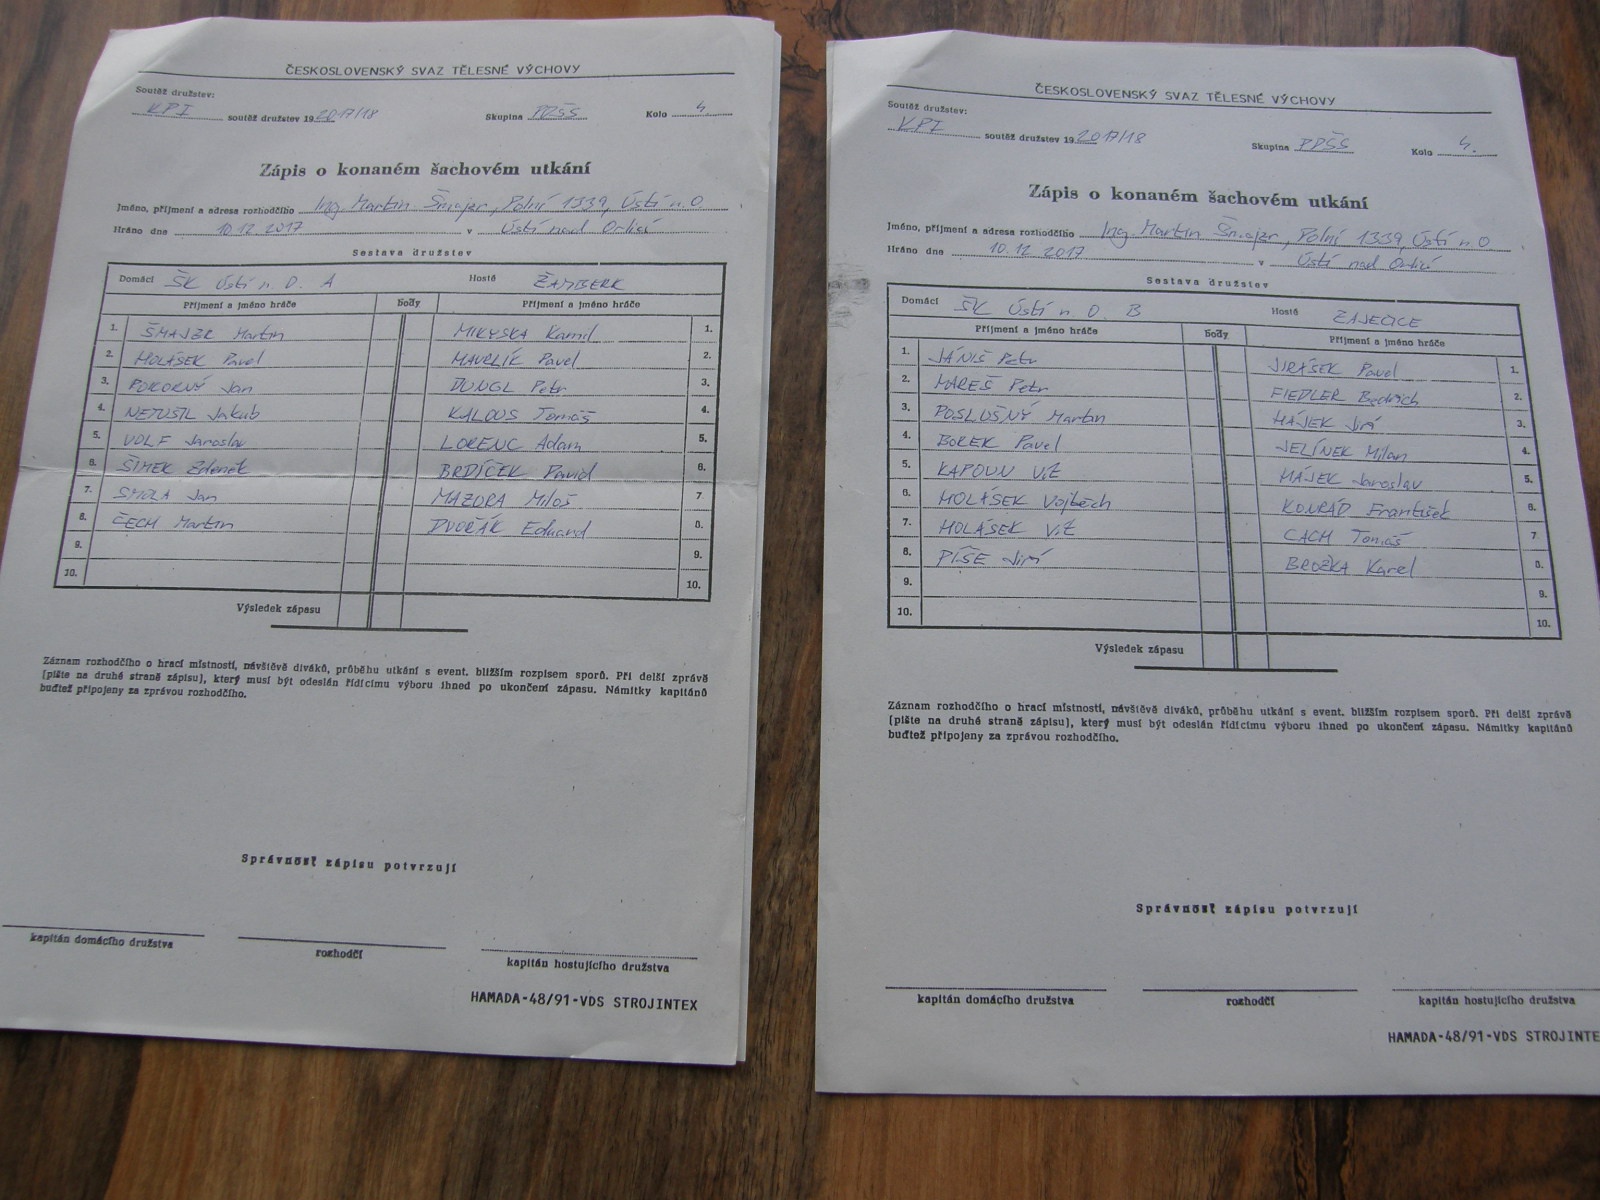 ČESKOSLOVENSKÝ SVAZ TĚLESNÉ VÝCHOVY
Soutěž družstev:
KPI soutěž družstev 19 2017/18 Skupina PDŠS Kolo 4.
Zápis o konaném šachovém utkání
Jméno, příjmení a adresa rozhodčího Ing. Martin Šmajzr, Polní 1339, Ústí n. O.
Hráno dne 10.12.2017 v Ústí nad Orlicí
Sestava družstev
Domácí ŠK Ústí n. O. A Hosté ŽAMBERK
Příjmení a jméno hráče body Příjmení a jméno hráče
1. ŠMAJZR Martin MIKYSKA Kamil 1.
2. MOLÁSEK Pavel MAVRLÍK Pavel 2.
3. POKORNÝ Jan DUNGL Petr 3.
4. NETUŠIL Jakub KALOUS Tomáš 4.
5. VOLF Jaroslav LORENC Adam 5.
6. ŠIMEK Zdeněk BRDÍČEK David 6.
7. SMOLA Jan MAZURA Miloš 7.
8. ČECH Martin DVOŘÁK Eduard 8.
9. 9.
10. 10.
Výsledek zápasu
Záznam rozhodčího o hrací místnosti, návštěvě diváků, průběhu utkání s event. bližším rozpisem sporů. Při delší zprávě
(pište na druhé straně zápisu), který musí být odeslán řídícímu výboru ihned po ukončení zápasu. Námitky kapitánů
buďtež připojeny za zprávou rozhodčího.
Správnost zápisu potvrzují
kapitán domácího družstva rozhodčí kapitán hostujícího družstva
HAMADA-48/91-VDS STROJINTEX
ČESKOSLOVENSKÝ SVAZ TĚLESNÉ VÝCHOVY
Soutěž družstev:
KPI soutěž družstev 19 2017/18 Skupina PDŠS Kolo 4.
Zápis o konaném šachovém utkání
Jméno, příjmení a adresa rozhodčího Ing. Martin Šmajzr, Polní 1339, Ústí n. O.
Hráno dne 10.12.2017 v Ústí nad Orlicí
Sestava družstev
Domácí ŠK Ústí n. O. B Hosté ZAJEČICE
Příjmení a jméno hráče body Příjmení a jméno hráče
1. JÁNIŠ Petr JIRÁSEK Pavel 1.
2. MAREŠ Petr FIEDLER Bedřich 2.
3. POSLUŠNÝ Martin HÁJEK Jiří 3.
4. BOREK Pavel JELÍNEK Milan 4.
5. KAPOUN Vít HÁJEK Jaroslav 5.
6. MOLÁSEK Vojtěch KONRÁD František 6.
7. MOLÁSEK Vít CACH Tomáš 7.
8. PÍŠE Jiří BROŽKA Karel 8.
9. 9.
10. 10.
Výsledek zápasu
Záznam rozhodčího o hrací místnosti, návštěvě diváků, průběhu utkání s event. bližším rozpisem sporů. Při delší zprávě
(pište na druhé straně zápisu), který musí být odeslán řídícímu výboru ihned po ukončení zápasu. Námitky kapitánů
buďtež připojeny za zprávou rozhodčího.
Správnost zápisu potvrzují
kapitán domácího družstva rozhodčí kapitán hostujícího družstva
HAMADA-48/91-VDS STROJINTE